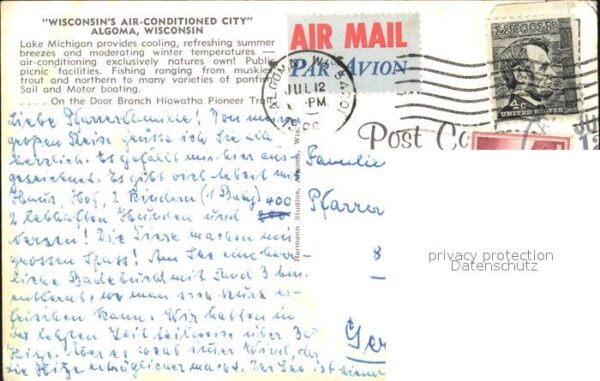 "WISCONSIN'S AIR-CONDITIONED CITY"
ALGOMA, WISCONSIN
Lake Michigan provides cooling, refreshing summer
breezes and moderating winter temperatures —
air-conditioning exclusively natures own! Public
picnic facilities. Fishing ranging from muskie
trout and northern to many varieties of panfish
Sail and Motor boating.
. . . . On the Door Branch Hiawatha Pioneer Trail
AIR MAIL
PAR AVION
ALGOMA, WIS
JUL 12
PM
LINCOLN
4c
UNITED STATES
Post
Liebe Pfarrerfamilie! Von
großen Reise grüsse ich Sie alle
herzlich. Es gefällt mir hier aus-
gezeichnet. Es gibt viel Arbeit mit
Haus, Hof, 2 Kindern (1 Baby)
2 lebhaften Hunden und 400
Nerzen! Die Tiere machen mir
grossen Spass! Am See eine herr-
liche Badebucht mit Sand 3
entfernt, wo man sich er-
frischen kann. Wir hatten in
der letzten Zeit teilweise über 30°
Hitze. Aber es immer Wind, der
die Hitze erträglicher macht. Der See ist
Harmann Studios, Algoma, Wis.
Familie
Pfarrer
8
Ger
privacy protection
Datenschutz